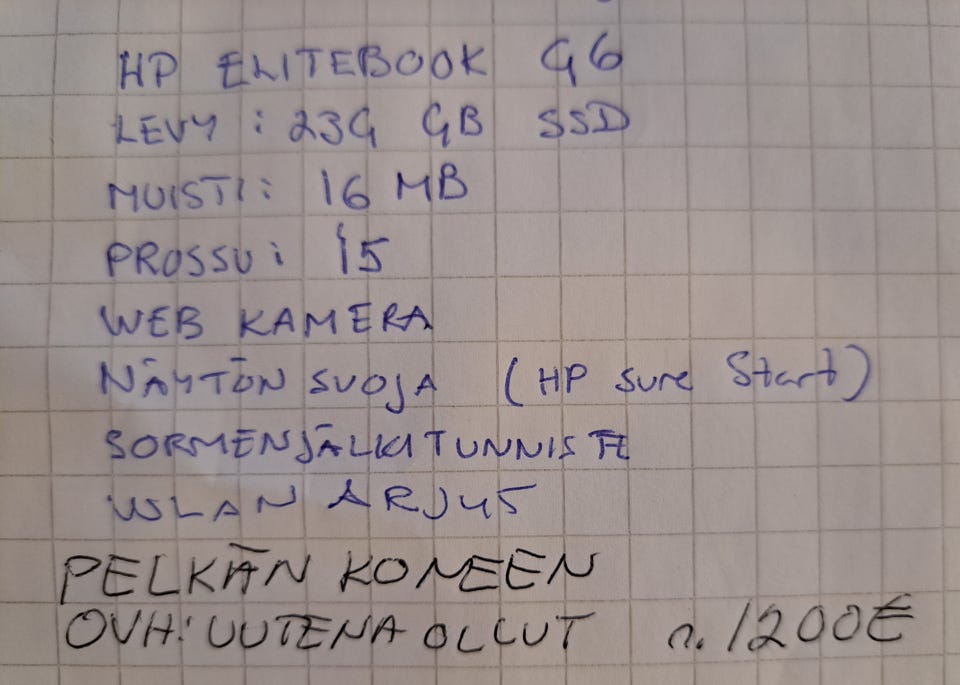 HP ELITEBOOK G6
LEVY: 239 GB SSD
MUISTI: 16 MB
PROSSU: i5
WEB KAMERA
NÄYTÖN SUOJA (HP Sure Start)
SORMENJÄLKITUNNISTE
WLAN & RJ45
PELKÄN KONEEN
OVH: UUTENA OLLUT n. 1200€